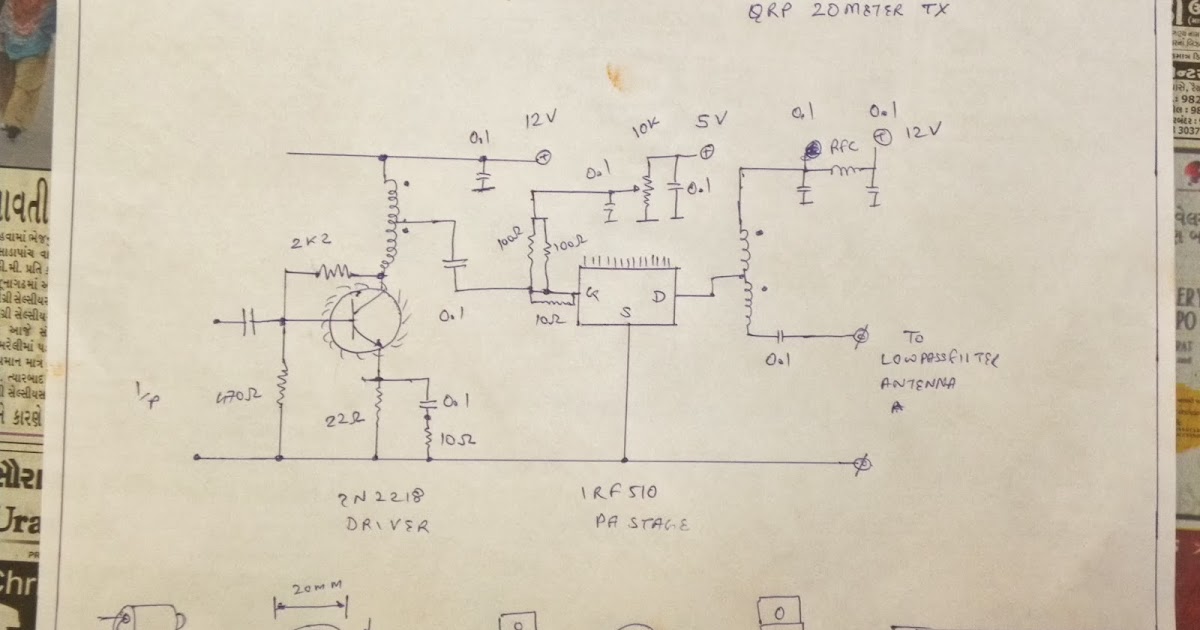 QRP 20 METER TX
12V
0.1
10K
5V
0.1
0.1
12V
RFC
0.1
0.1
2K2
100Ω
100Ω
0.1
G
D
S
10Ω
0.1
TO
LOWPASSFILTER
ANTENNA
I/P
470Ω
22Ω
0.1
10Ω
2N2218
DRIVER
IRF510
PA STAGE
20MM